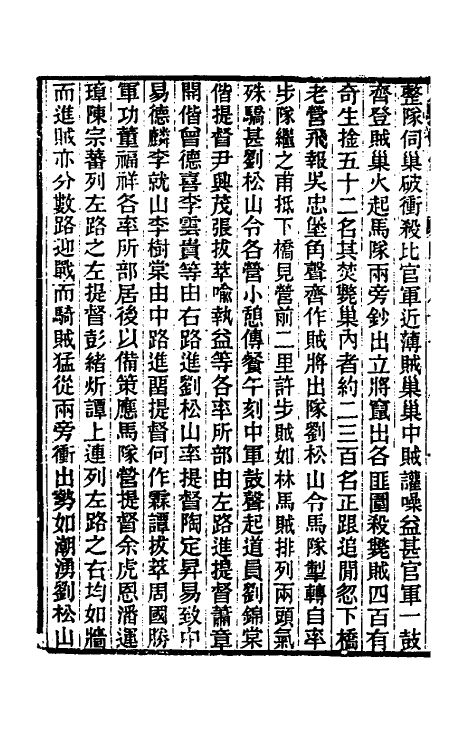 整隊伺巢破衝殺比官軍近薄賊巢巢中賊讙噪益甚官軍一鼓
齊登賊巢火起馬隊兩旁鈔出立將竄出各匪圍殺斃賊四百有
奇生擒五十二名其焚斃巢內者約二三百名正跟追閒忽下橋
老營飛報吳忠堡角聲齊作賊將出隊劉松山令馬隊掣轉自率
步隊繼之甫抵下橋見營前二里許步賊如林馬賊排列兩頭氣
殊驕甚劉松山令各營小憩傳餐午刻中軍鼓聲起道員劉錦棠
偕提督尹興茂張拔萃喻執益等各率所部由左路進提督蕭章
開偕曾德喜李雲貴等由右路進劉松山率提督陶定昇易致中
易德麟李就山李樹棠由中路進畱提督何作霖譚拔萃周國勝
軍功董福祥各率所部居後以備策應馬隊營提督余虎恩潘運
璋陳宗蕃列左路之左提督彭緒炘譚上連列左路之右均如牆
而進賊亦分數路迎戰而騎賊猛從兩旁衝出勢如潮湧劉松山